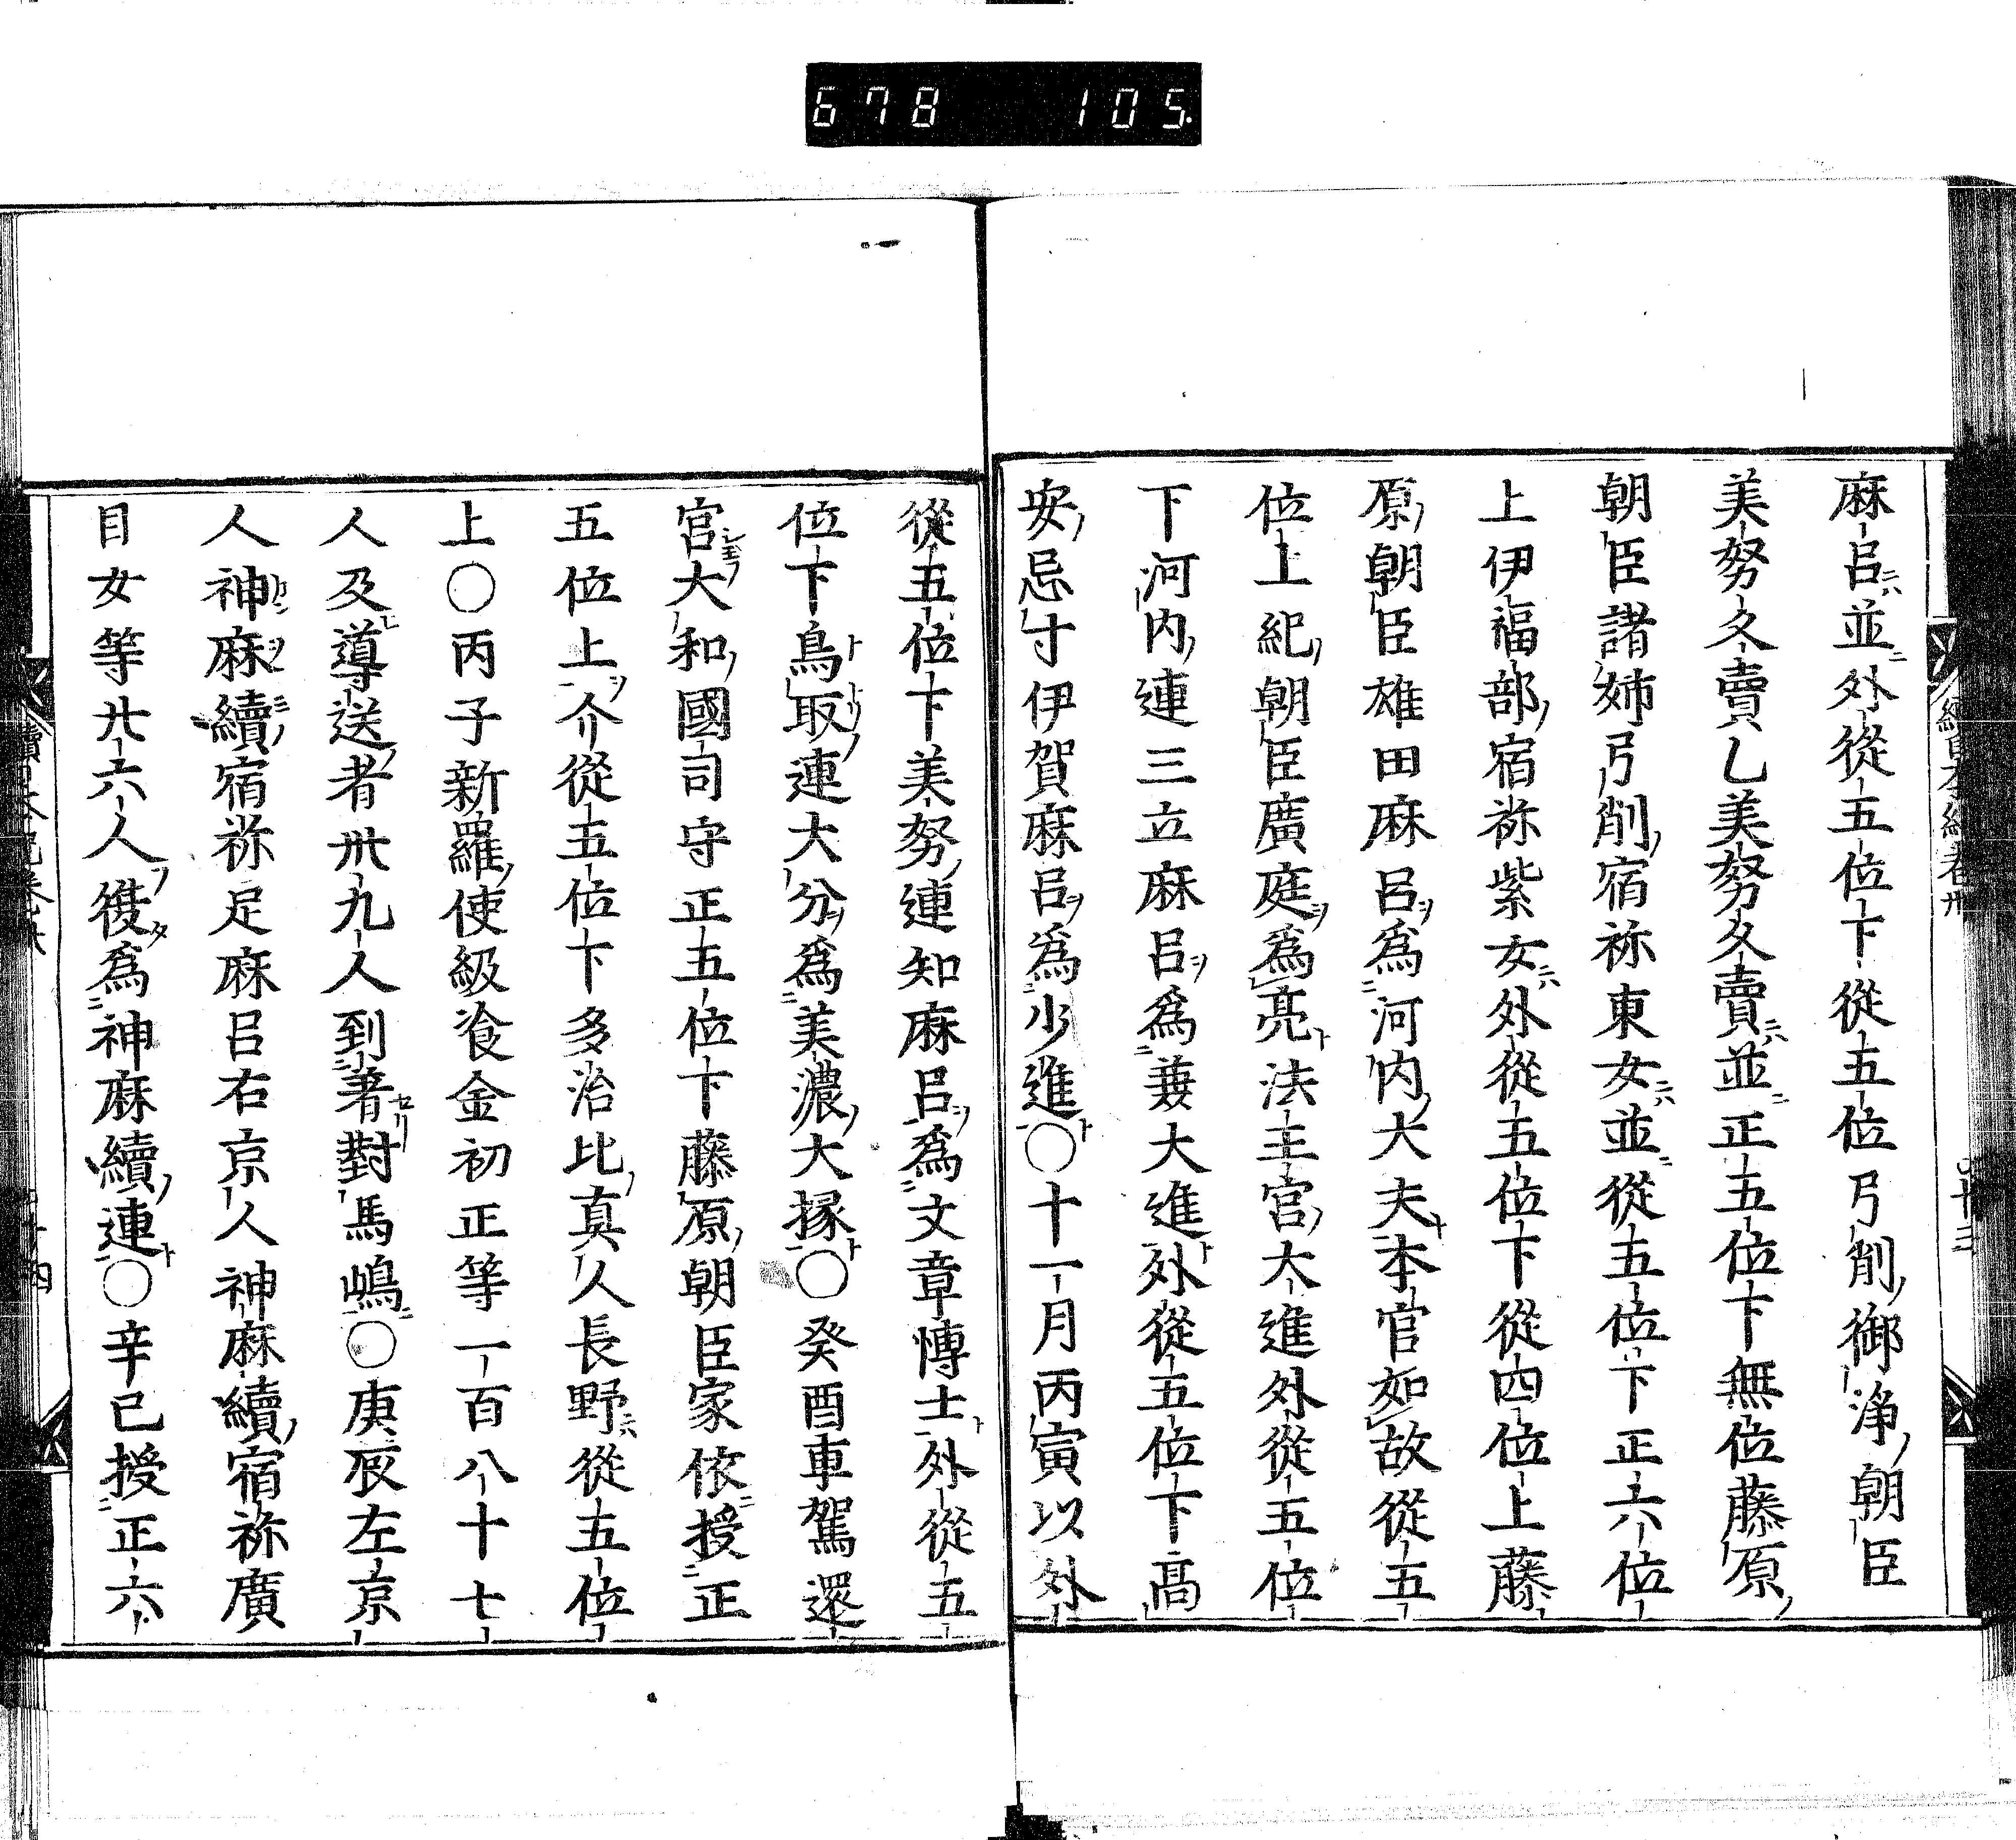 678 105.
麻呂並外從五位下從五位弓削御浄朝臣
美努久賣乙美努久賣並正五位下無位藤原
朝臣諸姉弓削宿祢東女並從五位下正六位
上伊福部宿祢紫女外從五位下從四位上藤
原朝臣雄田麻呂為河内大夫本官如故從五
位上紀朝臣廣庭為亮法主宮大進外從五位
下河内連三立麻呂為兼大進外從五位下高
安忌寸伊賀麻呂為少進〇十一月丙寅以外
從五位下美努連知麻呂為文章博士外從五
位下鳥取連大分為美濃大掾〇癸酉車駕還
宮大和國司守正五位下藤原朝臣家依授正
五位上介從五位下多治比真人長野從五位
上〇丙子新羅使級飡金初正等一百八十七
人及導送者卅九人到著對馬嶋〇庚辰左京
人神麻續宿祢足麻呂右京人神麻續宿祢廣
目女等廿六人復為神麻續連〇辛巳授正六